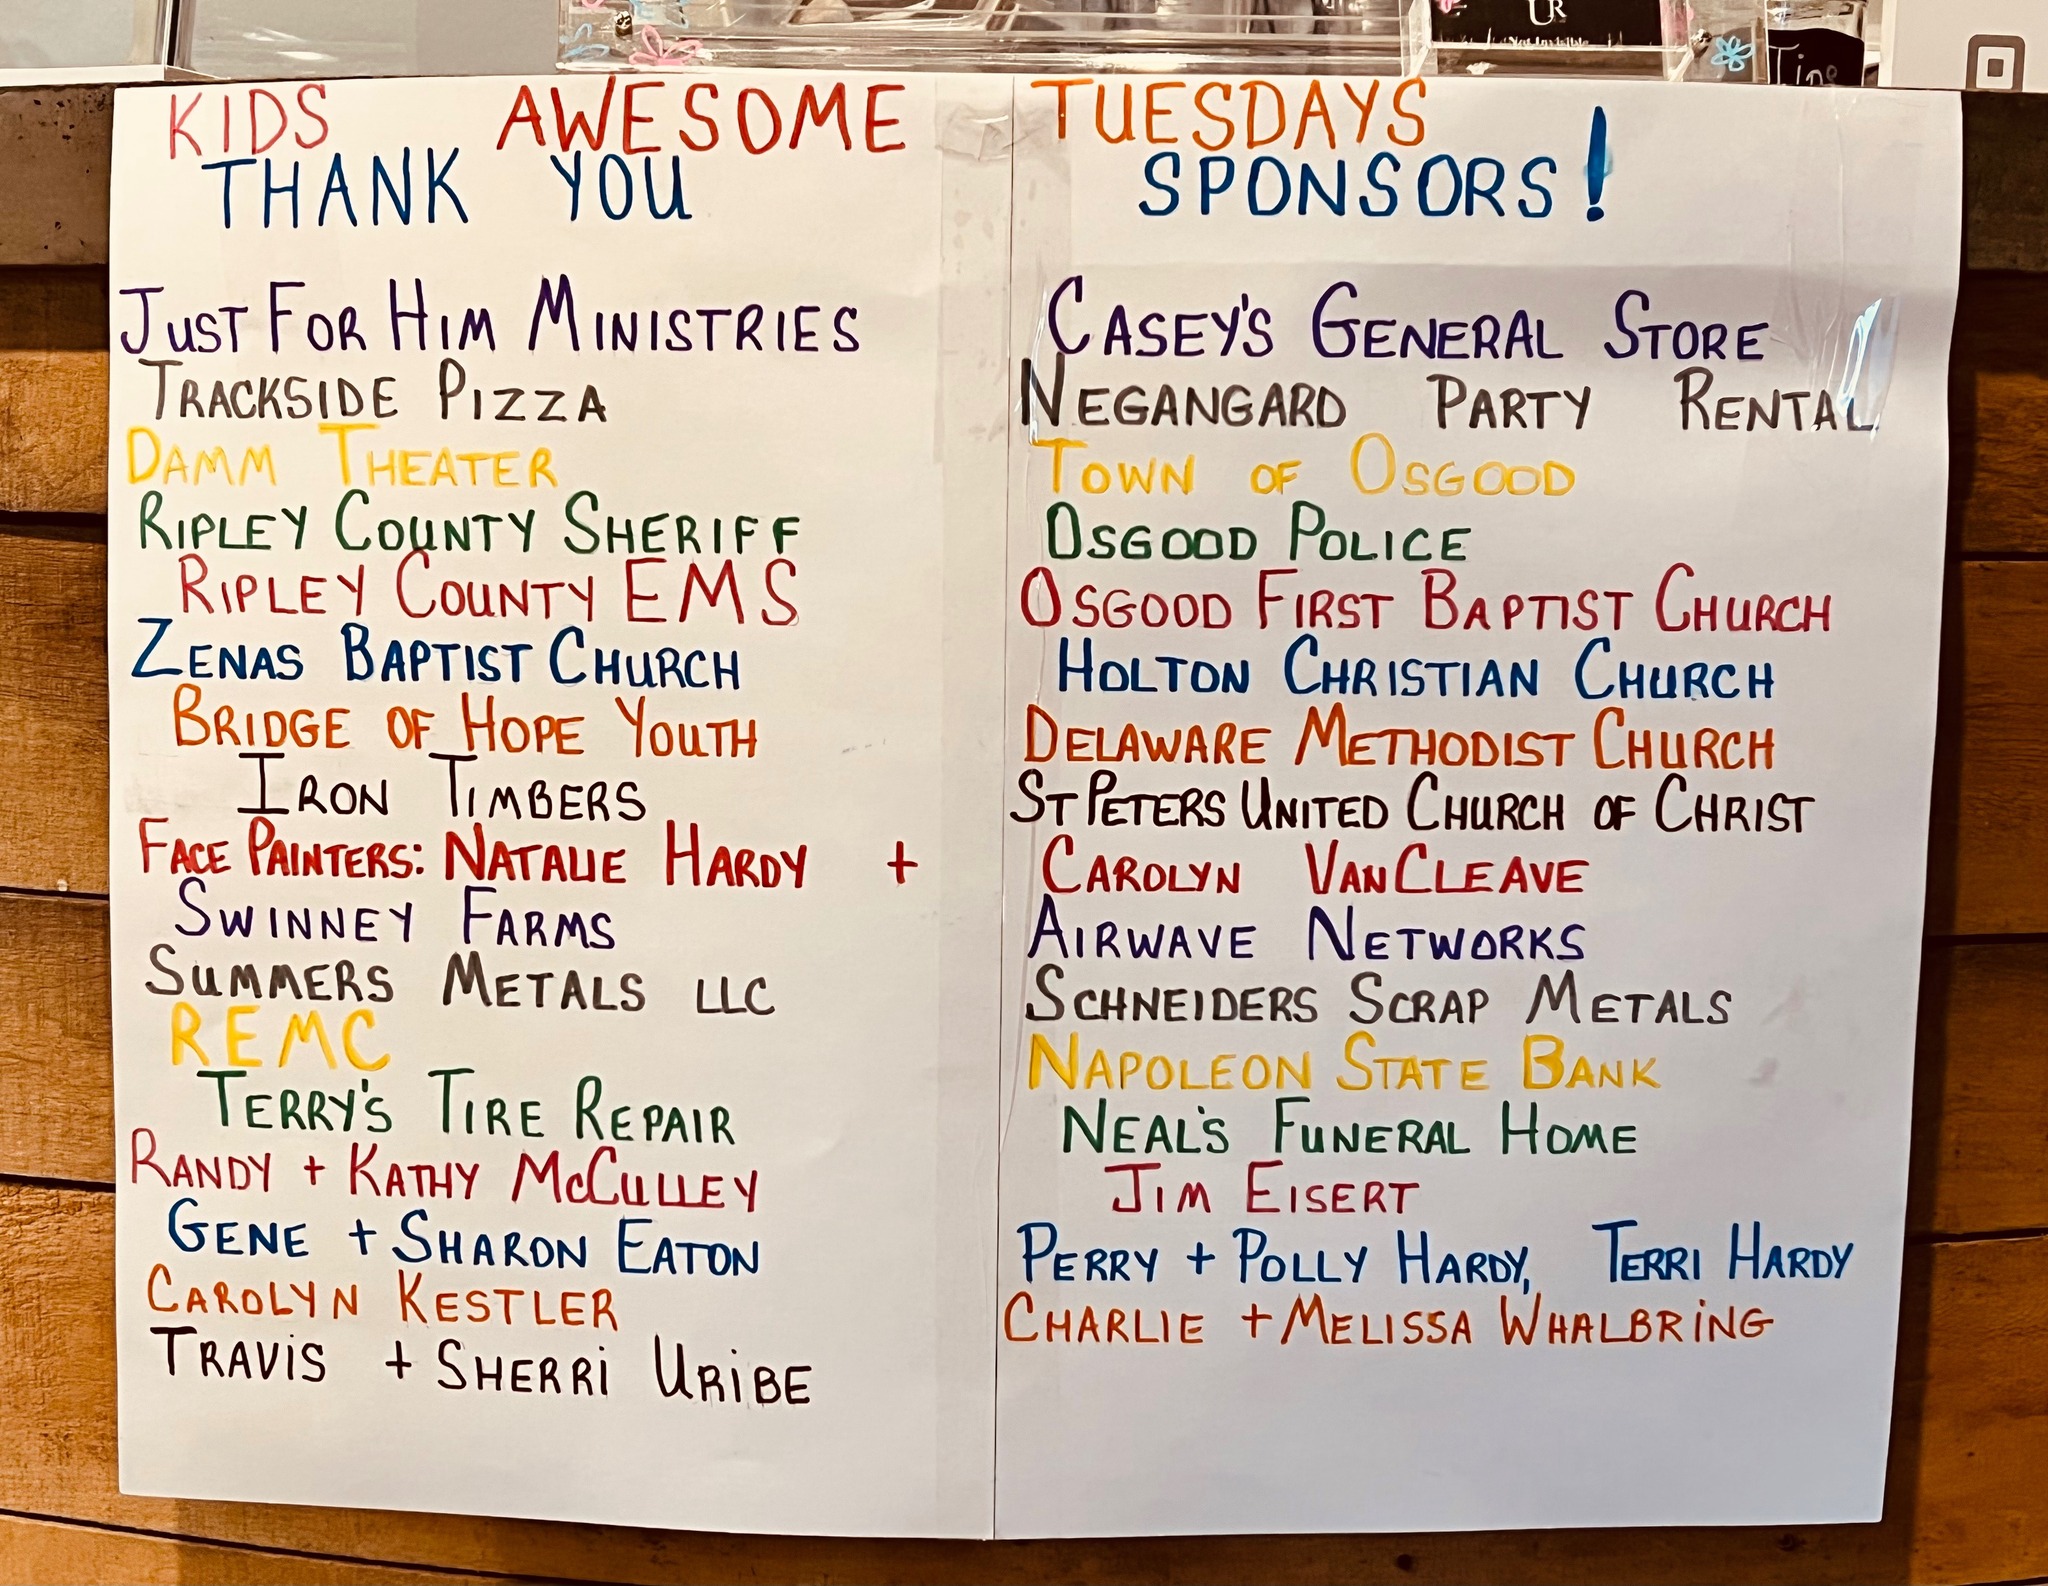 UR
Not Invisible
Tips
KIDS AWESOME TUESDAYS
THANK YOU SPONSORS!
JUST FOR HIM MINISTRIES
TRACKSIDE PIZZA
DAMM THEATER
RIPLEY COUNTY SHERIFF
RIPLEY COUNTY EMS
ZENAS BAPTIST CHURCH
BRIDGE OF HOPE YOUTH
IRON TIMBERS
FACE PAINTERS: NATALIE HARDY + CAROLYN VANCLEAVE
SWINNEY FARMS
SUMMERS METALS LLC
REMC
TERRY'S TIRE REPAIR
RANDY + KATHY McCULLEY
GENE + SHARON EATON
CAROLYN KESTLER
TRAVIS + SHERRi URiBE
CASEY'S GENERAL STORE
NEGANGARD PARTY RENTAL
TOWN OF OSGOOD
OSGOOD POLICE
OSGOOD FIRST BAPTIST CHURCH
HOLTON CHRISTIAN CHURCH
DELAWARE METHODIST CHURCH
ST PETERS UNITED CHURCH OF CHRIST
AIRWAVE NETWORKS
SCHNEIDERS SCRAP METALS
NAPOLEON STATE BANK
NEAL'S FUNERAL HOME
JIM EISERT
PERRY + POLLY HARDY, TERRI HARDY
CHARLIE + MELISSA WHALBRiNG